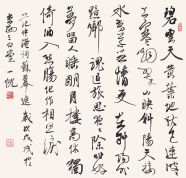 碧雲天黄葉地秋色連波
波上寒煙翠山映斜陽天接
水芳草無情更在斜陽外
黯鄉魂追旅思夜夜除非好
夢留人睡明月樓高休獨
倚酒入愁腸化作相思淚
范仲淹詞蘇幕遮歲次戊戌
三白堂一